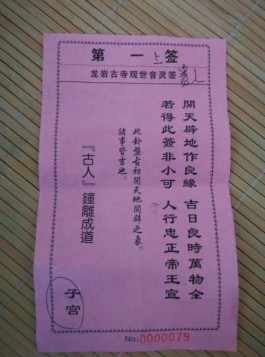 第一签
龙岩古寺观世音灵签
開天辟地作良緣 吉日良時萬物全
若得此簽非小可 人行忠正帝王宣
此卦盤古初開天地開辟之象
諸事皆吉也。
『古人』鐘離成道
子宫
No:0000079